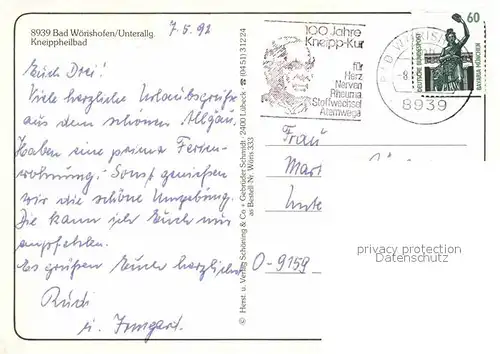 8939 Bad Wörishofen/Unterallg.
Kneippheilbad
7.5.92
Euch Drei!
Viele herzliche Urlaubsgrüße
aus dem schönen Allgäu.
Haben eine prima Ferien-
wohnung. Sonst genießen
wir die schöne Umgebung.
Die kann ich Euch nur
empfehlen.
Es grüßen Euch herzlich
Rudi
u. Irmgard.
© Herst. u. Verlag Schöning & Co + Gebrüder Schmidt · 2400 Lübeck · ☎ (0451) 31224
as Bestell Nr. Wöris. 333
100 Jahre
Kneipp-Kur
für
Herz
Nerven
Rheuma
Stoffwechsel
Atemwege
BAD WÖRISH
8939
60
DEUTSCHE BUNDESPOST
BAVARIA MÜNCHEN
Frau
Mart
Unte
O-9159
privacy protection
Datenschutz